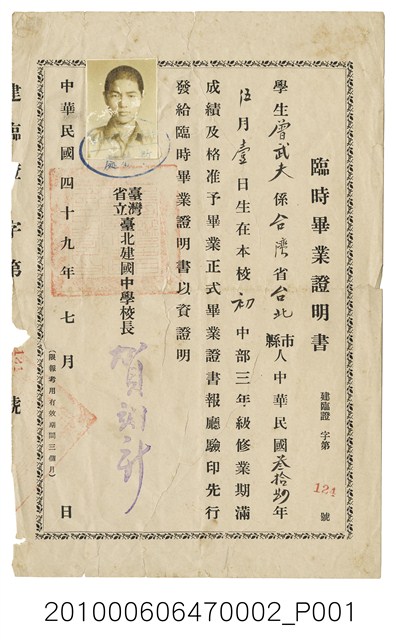 臨時畢業證明書
建臨證 字第 124 號
學生曾武夫係台灣省台北市縣人中華民國叁拾四年
伍月壹日生在本校初中部三年級修業期滿
成績及格准予畢業正式畢業證書報廳驗印先行
發給臨時畢業證明書以資證明
臺灣省立臺北建國中學校長 賀翊新
中華民國四十九年七月 日
(限報考用有效期間三個月)
建臨 字第 號
201000606470002_P001